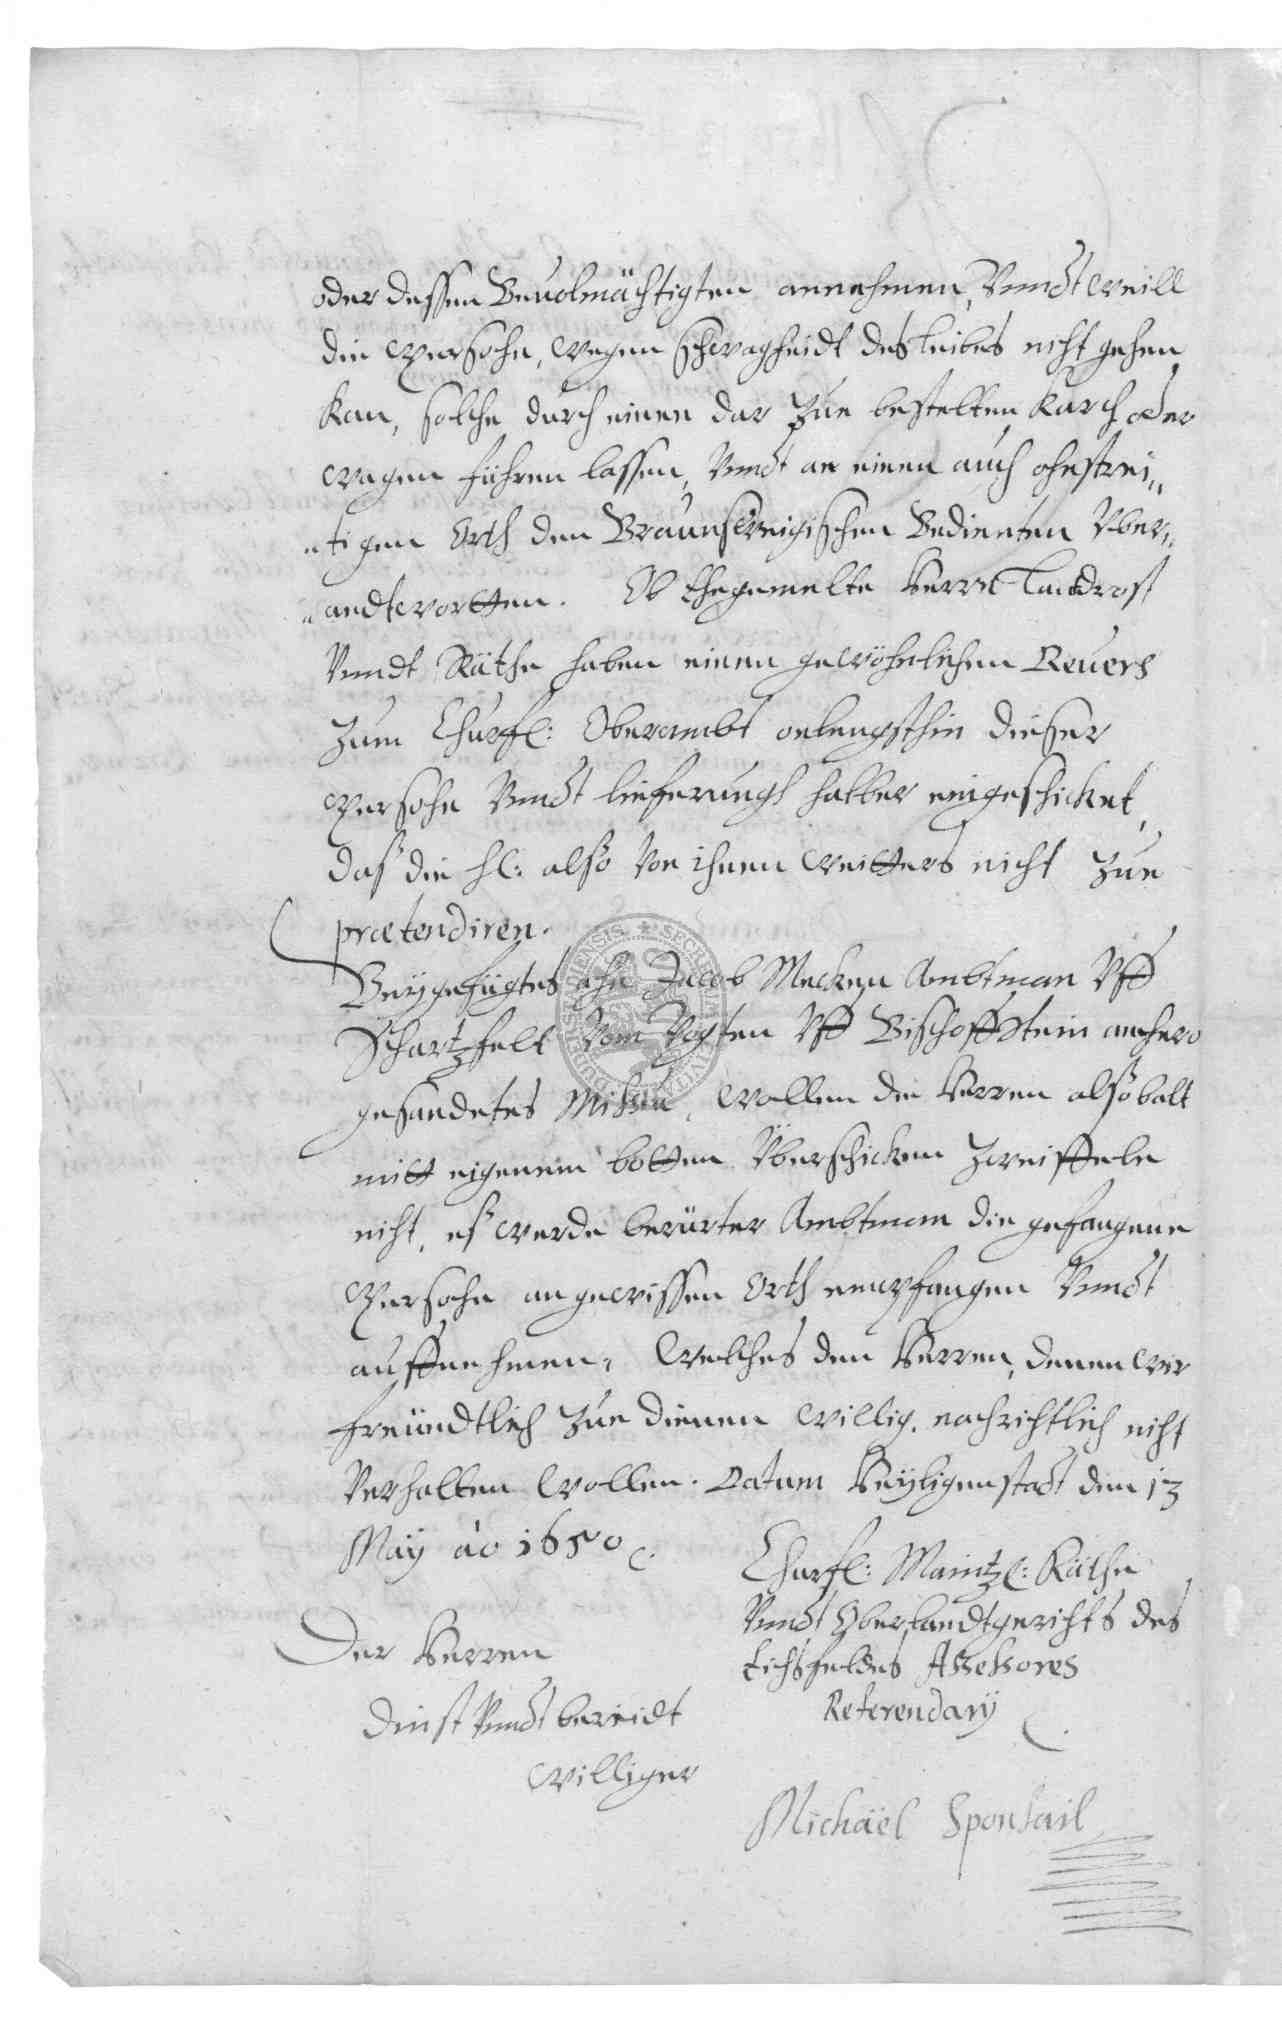 oder dessen Beuolmächtigten annehmen, Vnndt weill
die Persohn, wegen schwagheidt des leibes nicht gehen
kan, solche durch einen dar zue bestelten karch oder
wagen führen lassen, Vnndt an einen auch ohnstrei„
„tigen Orth den Braunschweigischen Bedienten Vber„
„andtwortten. Ob Ehrgemelte Herrn Landdrost
Vnndt Räthe haben einen gewöhnlichen Reuers
zum Churfl: Oberambt ohnlengsthin dieser
Persohn Vnndt lieferungh halber eingeschicket,
daß die hl: also von ihnen weitters nicht zue
prætendiren.
Beygefügtes ahn Jacob Mecken Ambtman Vff
Schartzfelt Vom Vogten Vff Bischoffstein anhero
gesandetes Missiu, wollen die Herren alsobalt
mitt eigenem botten Vberschicken zweiffeln
nicht, es werde berürter Ambtman die gefangene
Persohn an gewissen Orth empfangen Vnndt
auffnehmen, Welches den Herren, denen wir
freündtlich zue dienen willig, nachrichtlich nicht
Verhalten wollen. Datum Heyligenstadt den 13
May ao 1650
Churfl: Maintzl: Räthe
Vnndt Oberlandtgerichts des
Eichsfeldes Assessores
Referendarÿ
Der Herren
dinst Vnndt bereidt
williger
Michäel Sponsail